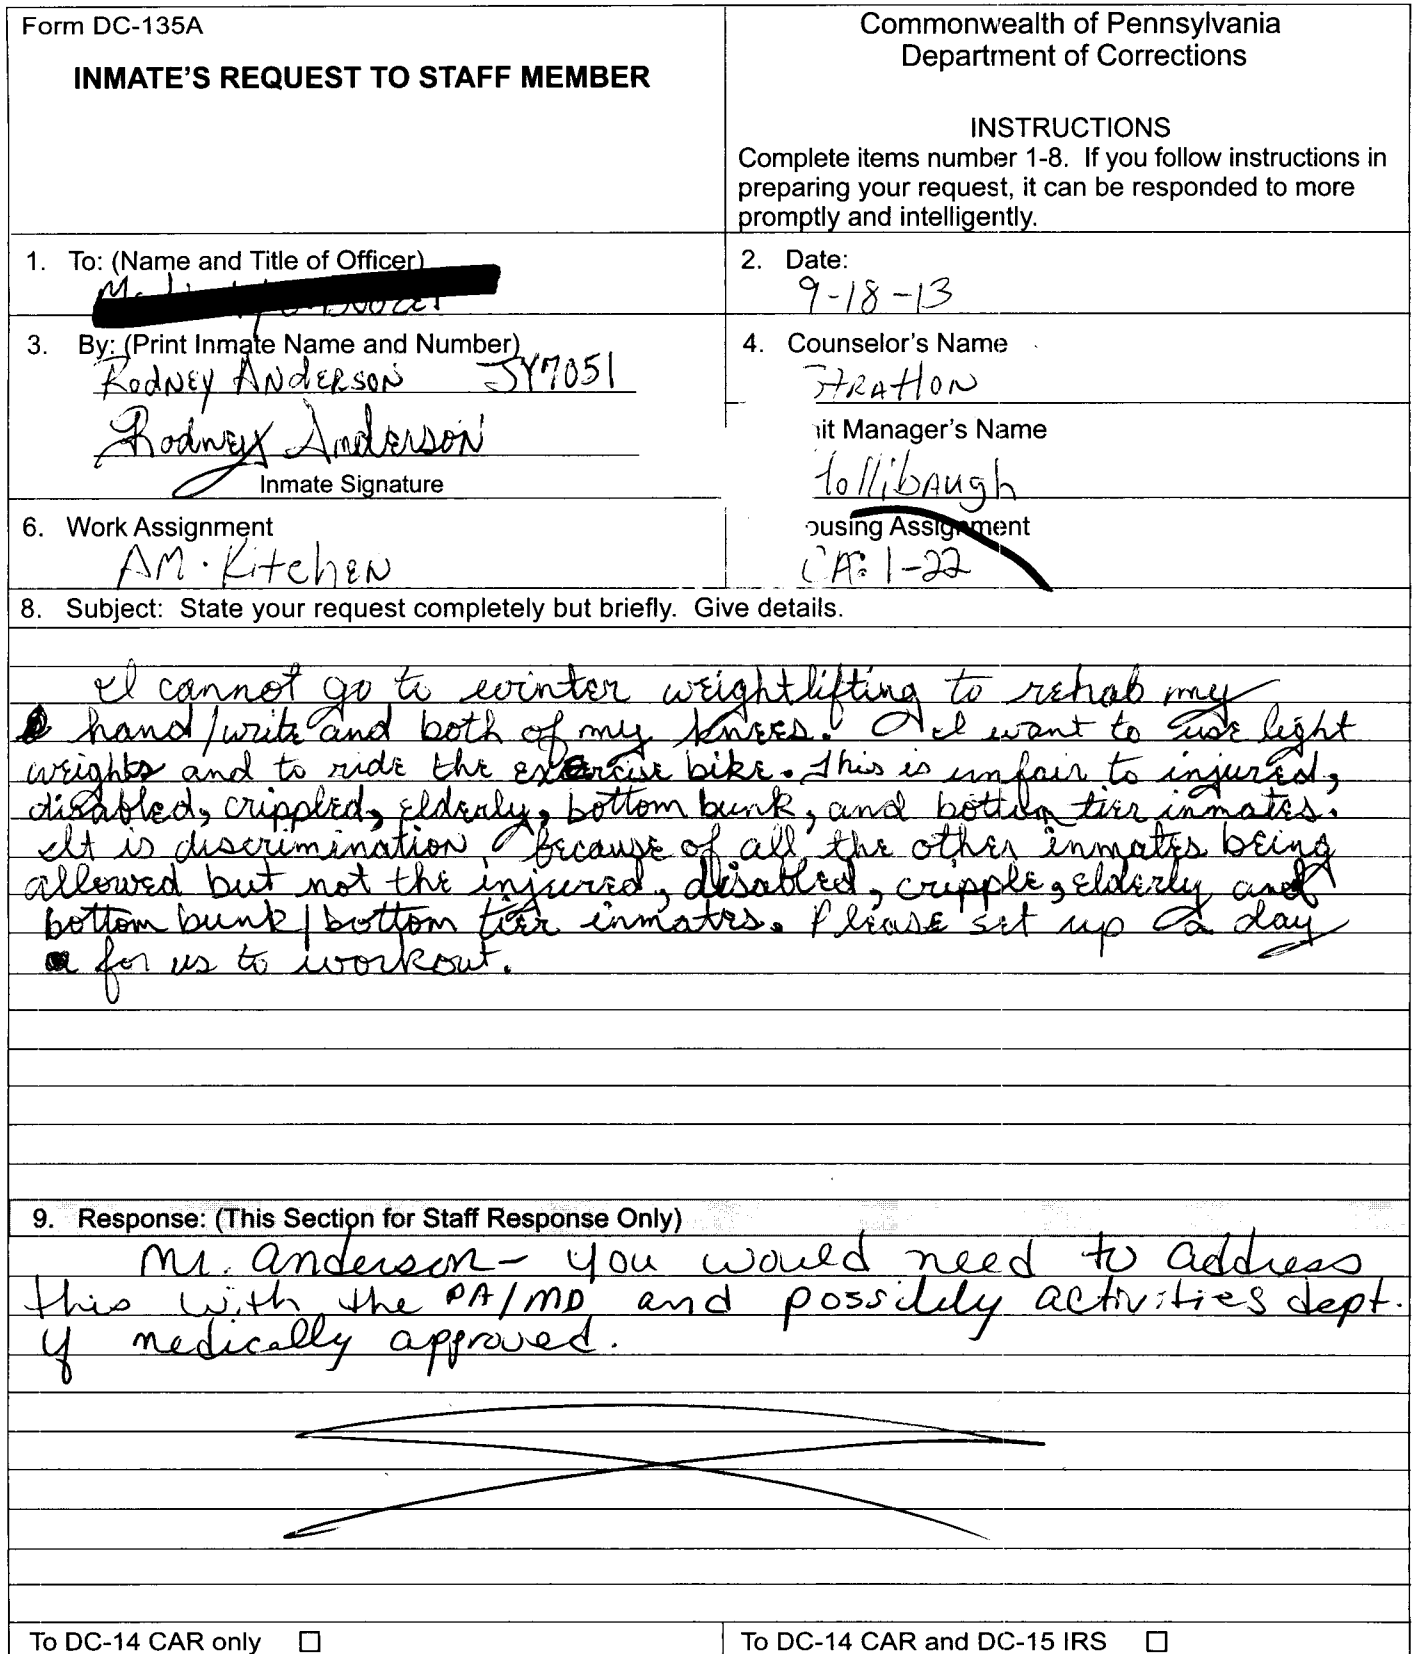 Form DC-135A
INMATE'S REQUEST TO STAFF MEMBER
Commonwealth of Pennsylvania
Department of Corrections
INSTRUCTIONS
Complete items number 1-8. If you follow instructions in
preparing your request, it can be responded to more
promptly and intelligently.
1. To: (Name and Title of Officer)
2. Date:
9-18-13
3. By: (Print Inmate Name and Number)
Rodney Anderson JY7051
Rodney Anderson
Inmate Signature
4. Counselor's Name
Stratton
nit Manager's Name
Hollibaugh
6. Work Assignment
AM. Kitchen
ousing Assignment
CA: 1-22
8. Subject: State your request completely but briefly. Give details.
I cannot go to winter weightlifting to rehab my
hand/write and both of my knees. I want to use light
weights and to ride the exercise bike. This is unfair to injured,
disabled, crippled, elderly, bottom bunk, and bottom tier inmates.
It is discrimination, because of all the other inmates being
allowed but not the injured, disabled, cripple, elderly and
bottom bunk/bottom tier inmates. Please set up a day
for us to workout.
9. Response: (This Section for Staff Response Only)
Mr. Anderson - you would need to address
this with the PA/MD and possibly activities dept.
if medically approved.
To DC-14 CAR only
To DC-14 CAR and DC-15 IRS